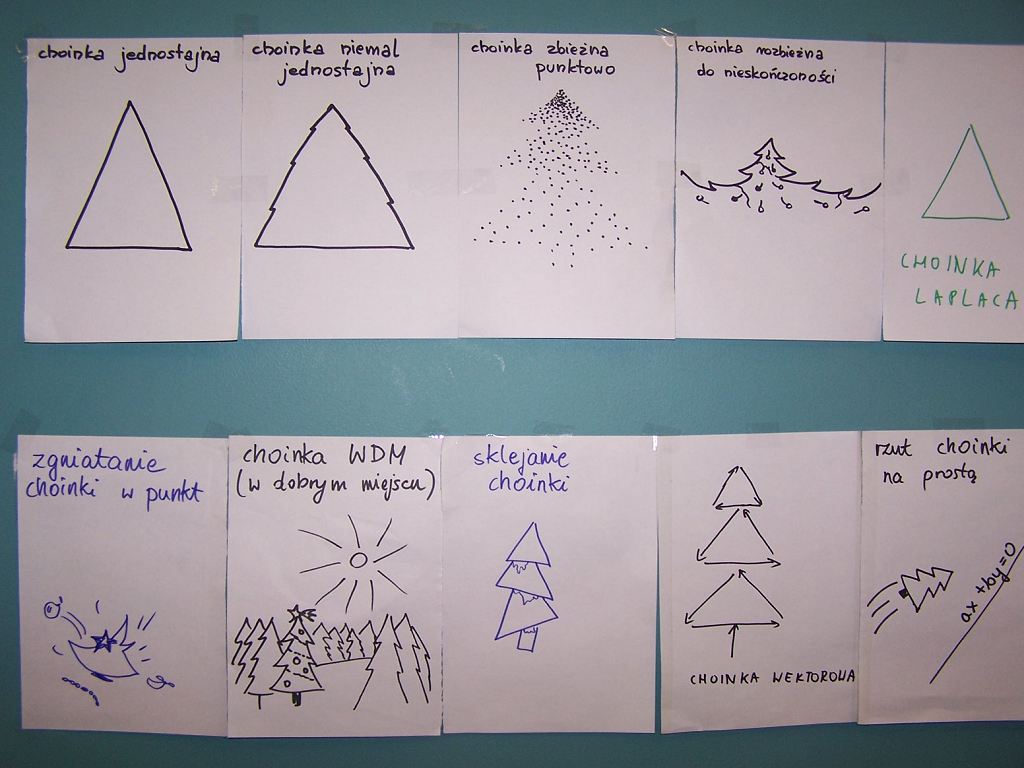 choinka jednostajna
choinka niemal
jednostajna
choinka zbieżna
punktowo
choinka rozbieżna
do nieskończoności
CHOINKA
LAPLACA
zgniatanie
choinki w punkt
choinka WDM
(w dobrym miejscu)
sklejanie
choinki
CHOINKA WEKTOROWA
rzut choinki
na prostą
ax + by = 0